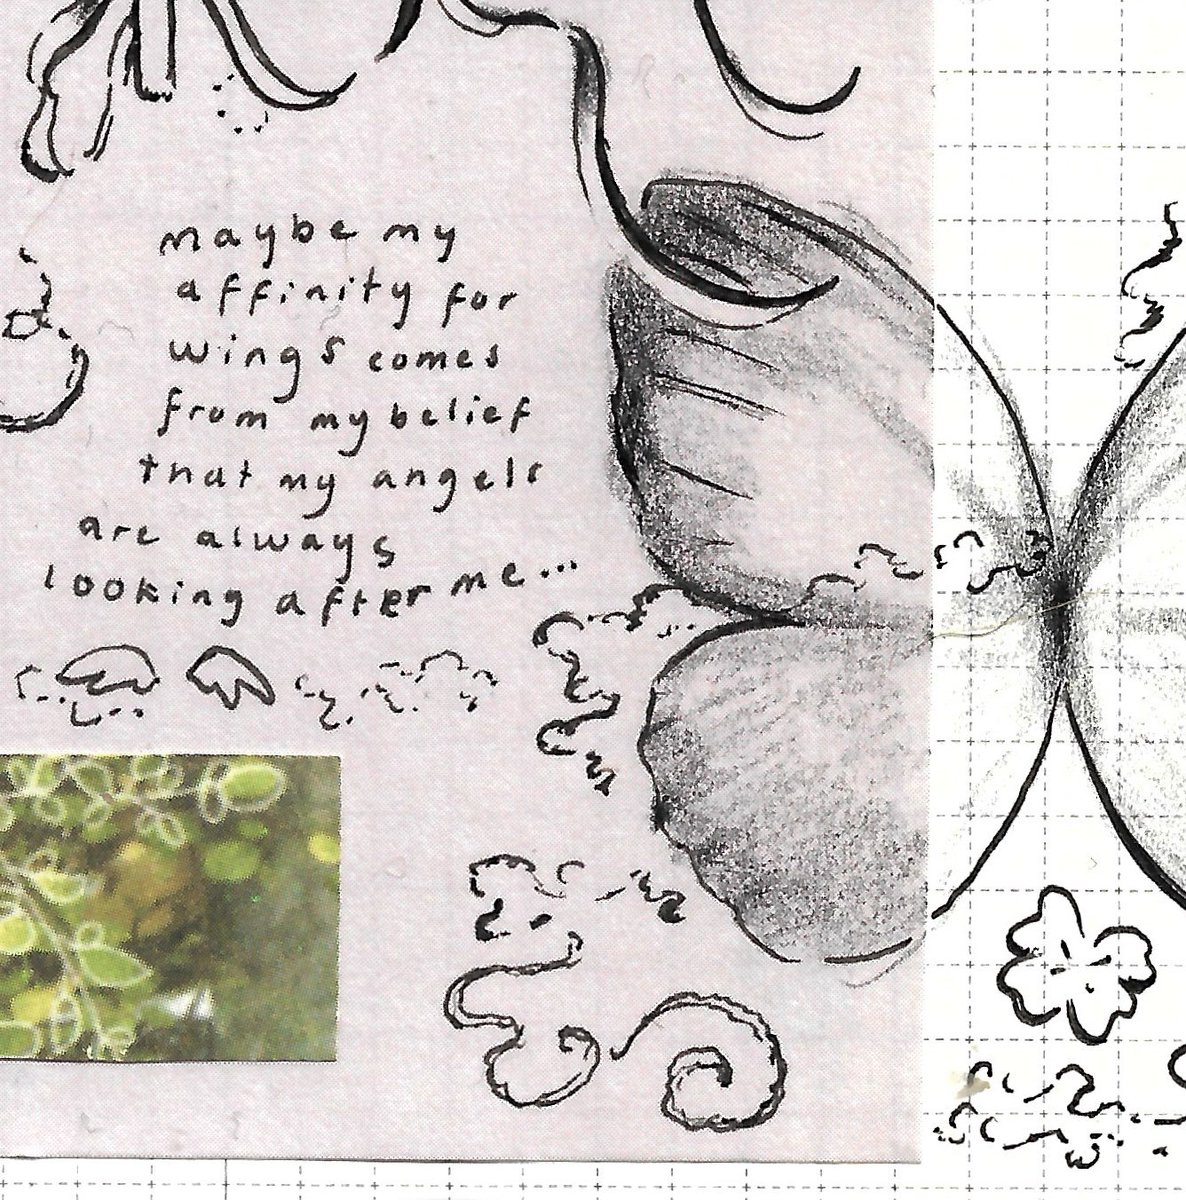 maybe my
affinity for
wings comes
from my belief
that my angels
are always
looking after me...